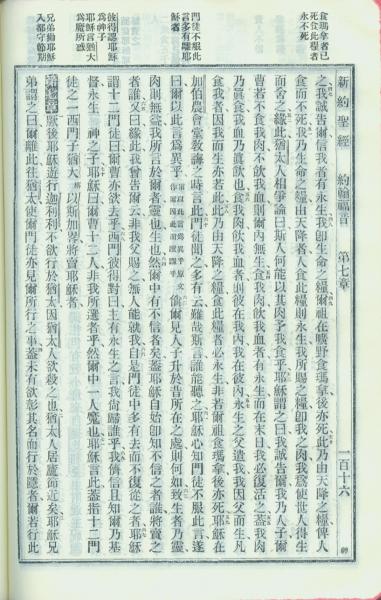 新約聖經　約翰福音　第七章　一百十六
食瑪拿者已
死食此糧者
永不死
之我誠告爾信我者有永生我卽生命之糧爾祖在曠野食瑪拿後亦死此乃由天降之糧俾人
食而不死我乃生命之糧由天降者人食此糧則永生我所賜之糧卽我之肉我為使世人得生
而舍之緣此猶太人相爭論曰斯人何能以其肉予我食乎耶穌謂之曰我誠告爾我乃人子爾
曹若不食我肉不飲我血則爾內無生食我肉飲我血者有永生而在末日我必復活之蓋我肉
乃眞食我血乃眞飲也食我肉飲我血者則彼在我內我在彼內永生之父遣我我因父而生凡
食我者因我而生亦若此此乃由天降之糧食此糧者必永生非若爾祖食瑪拿後亦死耶穌在
門徒不服此
言多有離耶
穌者
加伯農會堂敎誨之時言此門徒聞之多有云難哉斯言誰能聽之耶穌心知門徒不服此言遂
曰爾以此言為異乎 倘爾見人子升於昔所在之處則何如致生者乃靈
肉則無益我所言於爾者靈也生也然爾中有不信者矣蓋耶穌自始卽知不信之者誰將賣之
者誰又曰緣此我曾告爾云非我父賜之無人能就我自是門徒中多有去而不復從之者耶穌
彼得認耶穌
為神子
耶穌言猶大
為魔所惑
謂十二門徒曰爾曹亦欲去乎西門彼得對曰主有永生之言我尚歸誰乎我儕信且知爾乃基
督永生　神之子耶穌曰爾曹十二人非我所選者乎然爾中一人魔也耶穌言此蓋指十二門
徒之一西門子猶大 稱以斯加畧將賣耶穌者
兄弟勸耶穌
入都守節期
第七章 厥後耶穌遊行迦利利不欲行於猶太因猶太人欲殺之也猶太人居廬節近矣耶穌兄
弟謂之曰爾離此往猶太使爾門徒亦見爾所行之事蓋未有欲彰其名而行於隱者爾若行此